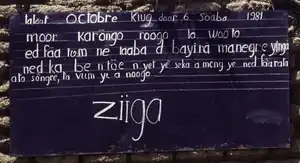 lakat OCTOBRE Kiug daar 6 Soaba 1981
moor karongo roogo la woto
ed faa tom ne laaba a bayira manegre yinga
ned ka be n tõe n yet ye seka a meng ye ned fãa rata
a to songre, la vum ye a noogo
ziiga